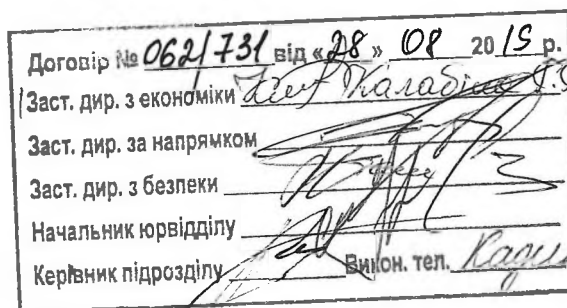 Договір № 062/731 від «28» 08 2015 р.
Заст. дир. з економіки
Заст. дир. за напрямком
Заст. дир. з безпеки
Начальник юрвідділу
Керівник підрозділу Викон. тел.